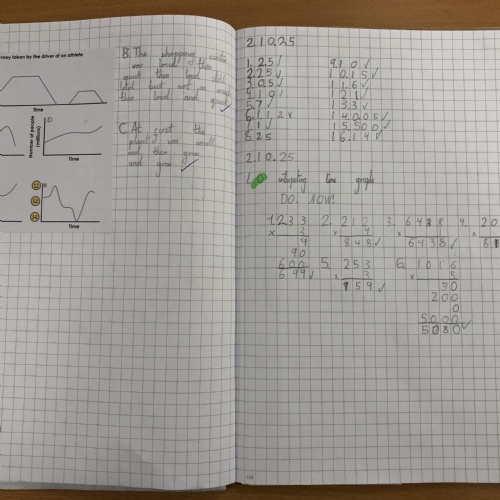 ney taken by the driver of an athlete
Time
Number of people
(millions)
D
Time
Time
B. The shopping centre
was loud
quiet then loud still
loud but not as
then loud and quiet ✓
C. At first the
plant was small
and then grew
and grew ✓
2.10.25
1. 25 ✓
2. 25 ✓
3. 0.5 ✓
4. 10 ✓
5. 7 ✓
6. 1.12 x
7. 1 ✓
8. 25
9. 10 ✓
10. 15 ✓
11. 6 ✓
12. 1 ✓
13. 3 ✓
14. 0.05 ✓
15. 500 ✓
16. 14 ✓
2.10.25
L.O interpreting time graphs
DO NOW!
1. 233
x 3
9
90
600
699 ✓
2. 212
x 4
848 ✓
3. 6438
x 1
6438 ✓
4. 20
x
81
5. 253
x 3
759 ✓
6. 1016
x 5
30
200
0
5000
5080 ✓